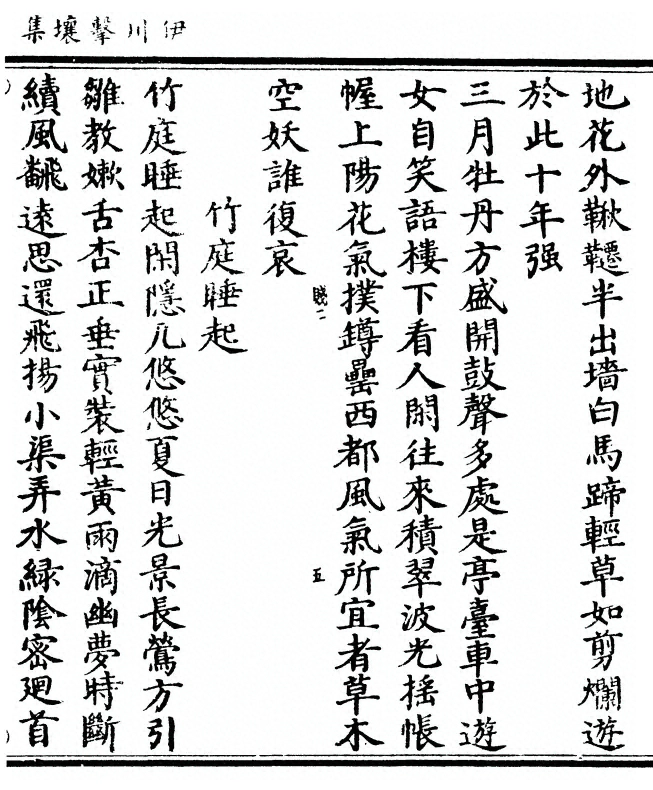 伊川擊壤集
地花外鞦韆半出墻白馬蹄輕草如剪爛遊
於此十年强
三月牡丹方盛開鼓聲多處是亭臺車中遊
女自笑語樓下看人閑往來積翠波光搖帳
幄上陽花氣撲罇罍西都風氣所宜者草木
賤二
五
空妖誰復哀
竹庭睡起
竹庭睡起閑隱几悠悠夏日光景長鶯方引
雛教嫩舌杏正垂實裝輕黃雨滴幽夢時斷
續風飜遠思還飛揚小渠弄水綠陰密廻首